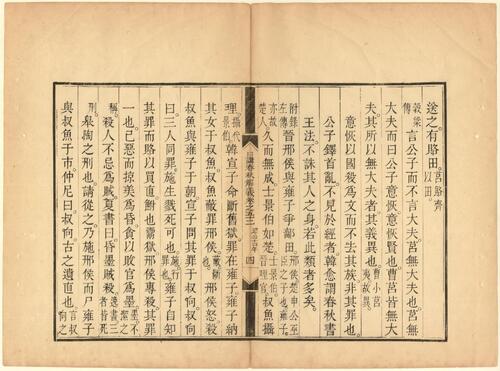 送之有賂田。莒賂齊以田。
穀梁傳言公子而不言大夫莒無大夫也莒無
大夫而曰公子意恢意恢賢也曹莒皆無大
夫其所以無大夫者其義異也。曹小莒夷故異。
意恢以國殺為文而不去其族非其罪也。
公子鐸首亂不見於經者韓愈謂春秋書
王法不誅其人之身若此類者多矣。
附錄左傳晉邢侯與雍子爭鄐田。邢侯楚申公巫臣之子也雍子
亦故楚人。久而無成士景伯如楚士景伯晉理官叔魚攝
日講春秋解義卷五十二 昭公十四年 四
理攝代景伯韓宣子命斷舊獄罪在雍子雍子納
其女于叔魚叔魚蔽罪邢侯蔽斷也邢侯怒殺
叔魚與雍子于朝宣子問其罪于叔向叔向
曰三人同罪施生戮死可也施行罪也雍子自知
其罪而賂以買直鮒也鬻獄邢侯專殺其罪
一也己惡而掠美為昏貪以敗官為墨墨不潔之
稱。殺人不忌為賊夏書曰昏墨賊殺逸書三者皆死
刑皋陶之刑也請從之乃施邢侯而尸雍子
與叔魚于市仲尼曰叔向古之遺直也言叔向之